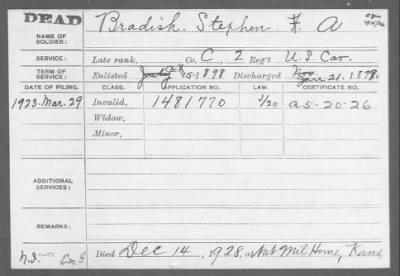 DEAD
Bradish, Stephen F. A
NAME OF SOLDIER:
SERVICE: Late rank, Co. C, 2 Reg't U.S. Cav.
TERM OF SERVICE: Enlisted Oct 15-1898 Discharged Jan 21, 1899.
DATE OF FILING. CLASS. APPLICATION NO. LAW. CERTIFICATE NO.
1923 Mar. 29 Invalid, 1481770 a 5-20-26
Widow,
Minor,
ADDITIONAL SERVICES:
REMARKS:
Died Dec 14, 1928, at Nat Mil Home, Kans